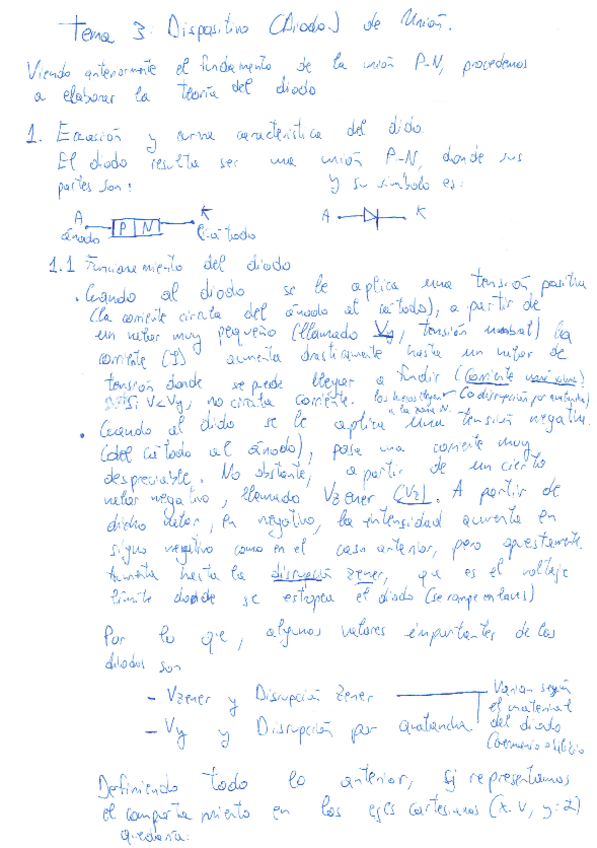 Tema 3: Dispositivo (Diodo) de Unión.
Viendo anteriormente el fundamento de la unión P-N, procedemos
a elaborar la teoría del diodo
1. Ecuación y curva característica del diodo.
El diodo resulta ser una unión P-N, donde sus
partes son: y su símbolo es:
A P N K A K
ánodo Cátodo
1.1 Funcionamiento del diodo
• Cuando al diodo se le aplica una tensión positiva
(la corriente circula del ánodo al cátodo), a partir de
un valor muy pequeño (llamado Vγ, tensión umbral) la
corriente (I) aumenta drásticamente hasta un valor de
tensión donde se puede llegar a fundir (corriente
Si V<Vγ, no circula corriente. (o disrupción por avalancha)
a la zona N.
• Cuando al diodo se le aplica una tensión negativa
(del cátodo al ánodo), pasa una corriente muy
despreciable. No obstante, a partir de un cierto
valor negativo, llamado Vzener (Vz). A partir de
dicho valor, en negativo, la intensidad aumenta en
signo negativo como en el caso anterior, pero
aumenta hasta la disrupción zener, que es el voltaje
límite donde se estropea el diodo (se rompe en
Por lo que, algunos valores importantes de los
diodos son
- Vzener y Disrupción zener Varían según
- Vγ y Disrupción por avalancha el material
del diodo
(Germanio o silicio
Definiendo todo lo anterior, si representamos
el comportamiento en los ejes cartesianos (x: V, y: I)
quedaría: